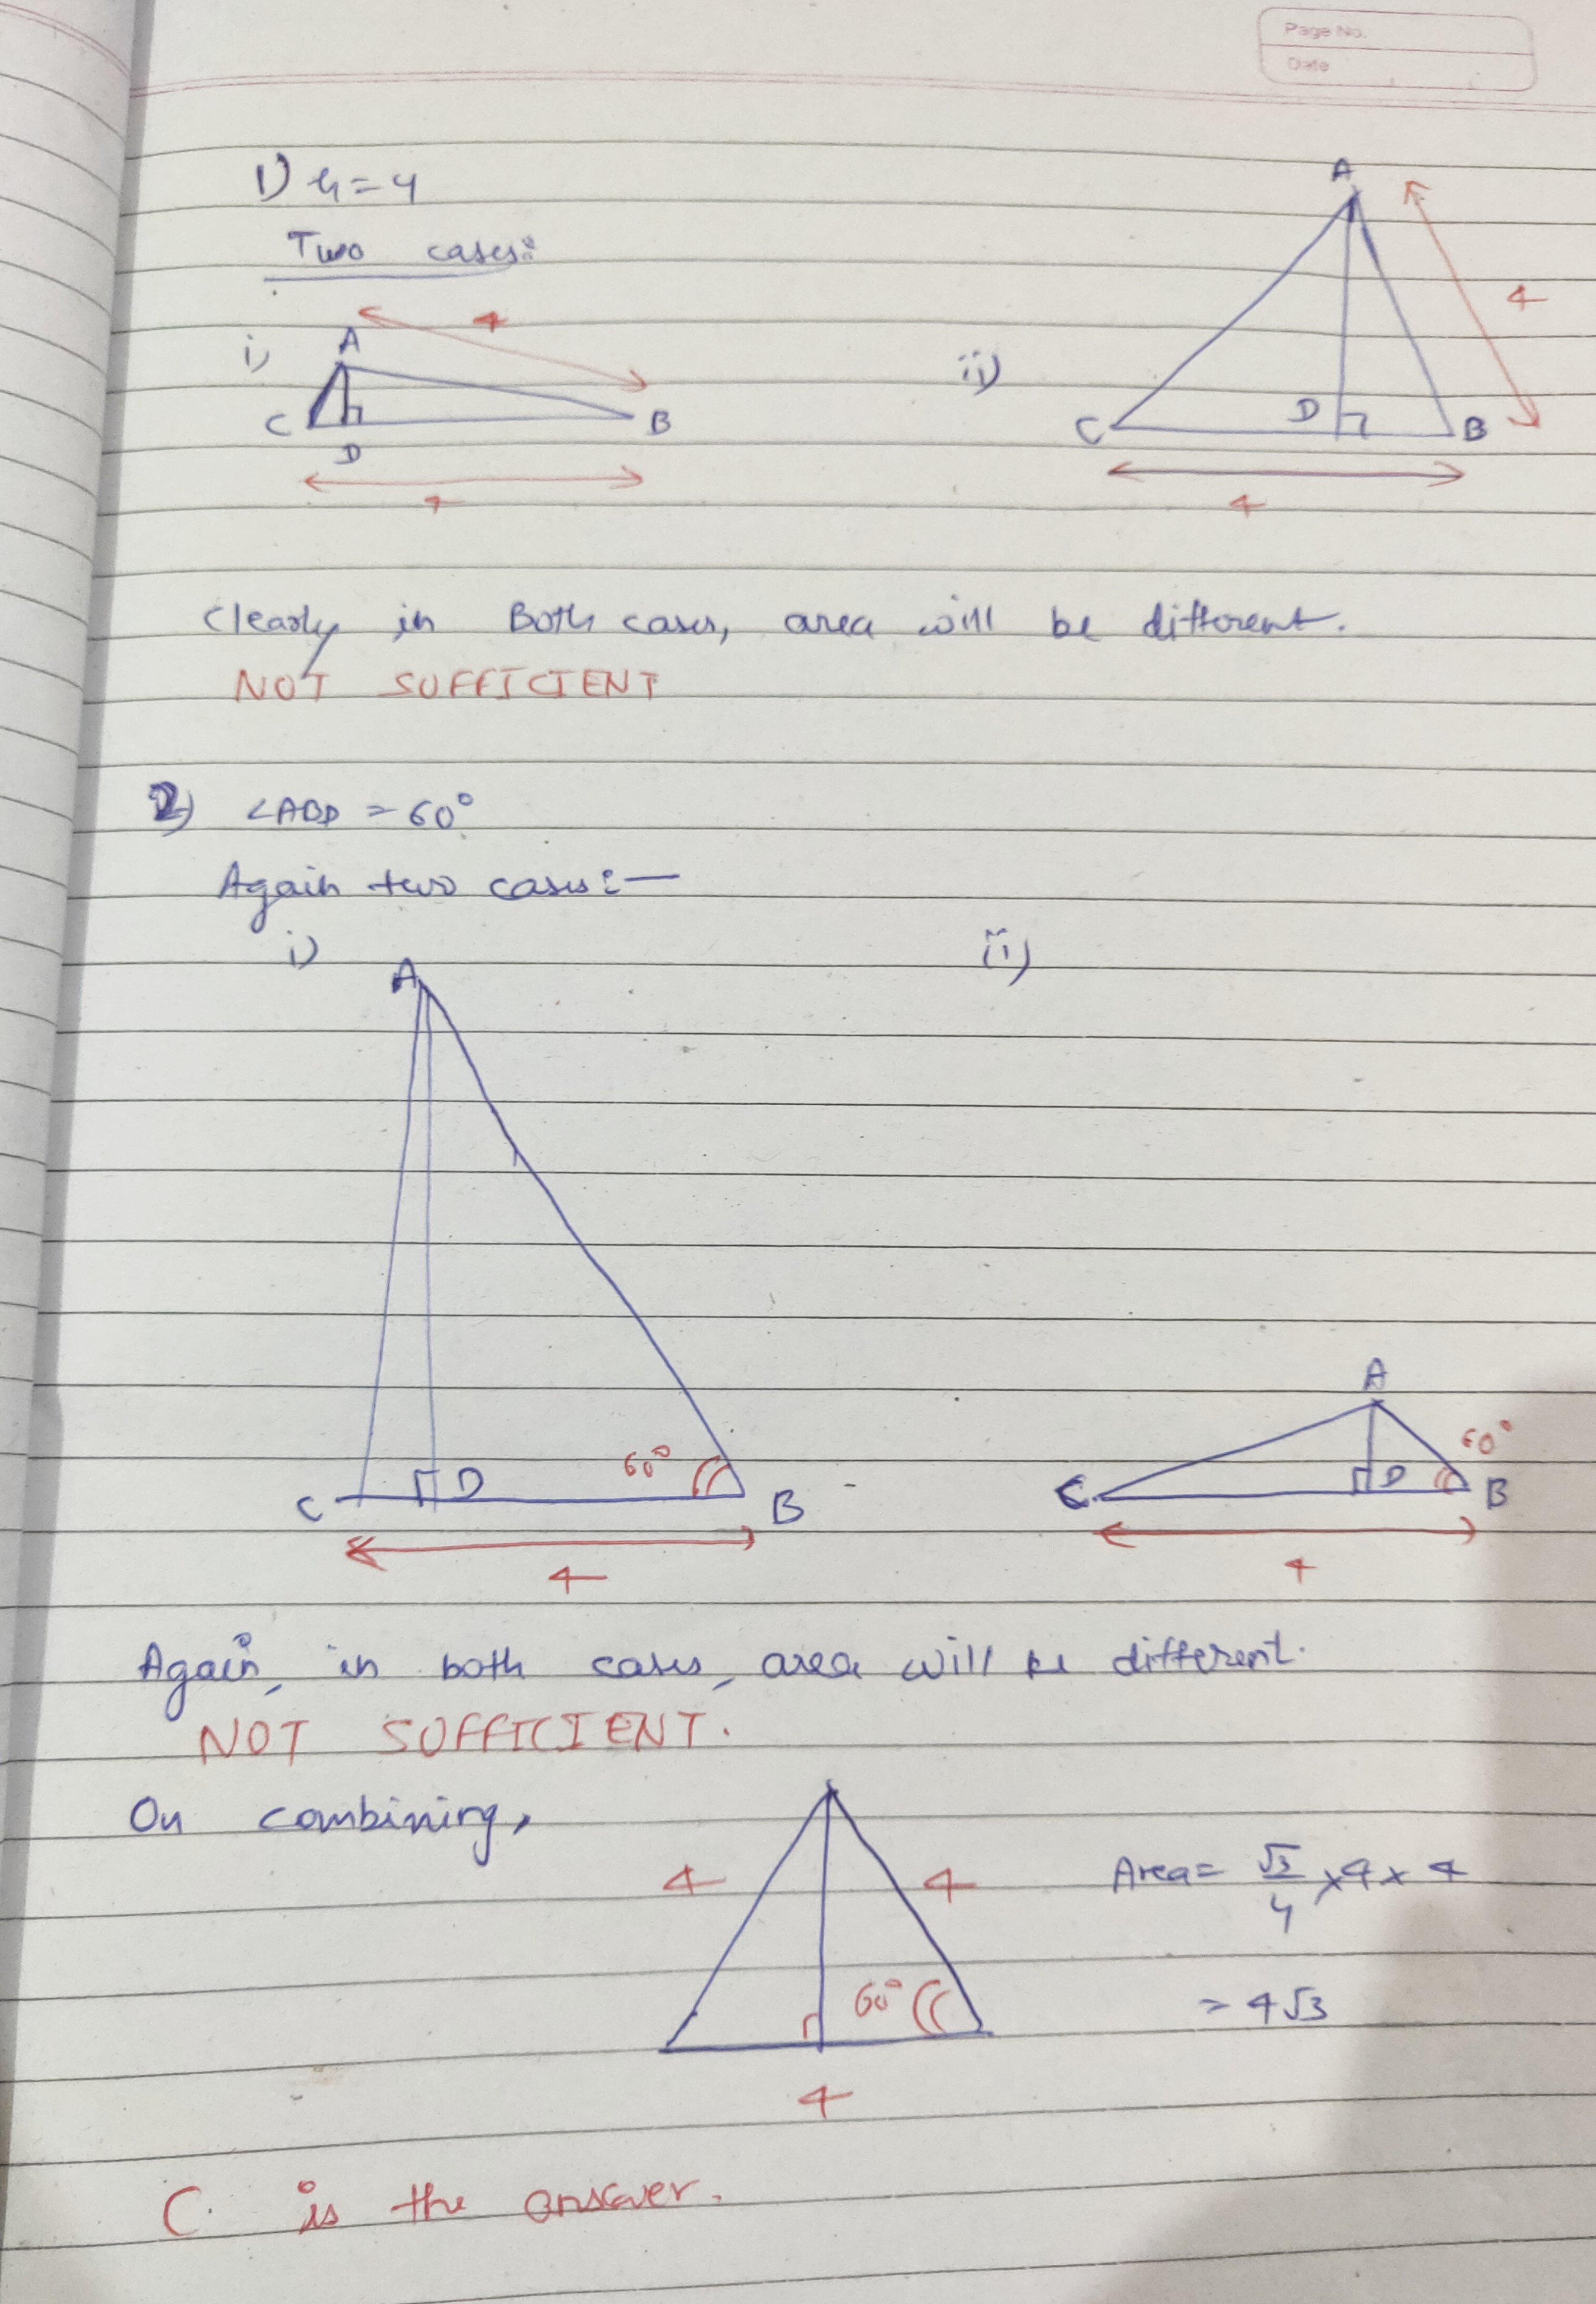 Page No.
Date
1) h=4
Two cases:
i)
A
4
C
D
B
4
ii)
A
4
C
D
B
4
Clearly in Both cases, area will be different.
NOT SUFFICIENT
2) ∠ABD = 60°
Again two cases:—
i)
A
60°
C
D
B
4
ii)
A
60°
C
D
B
4
Again, in both cases, area will be different.
NOT SUFFICIENT.
On combining,
4
4
60°
4
Area = √3/4 × 4 × 4
= 4√3
C. is the answer.